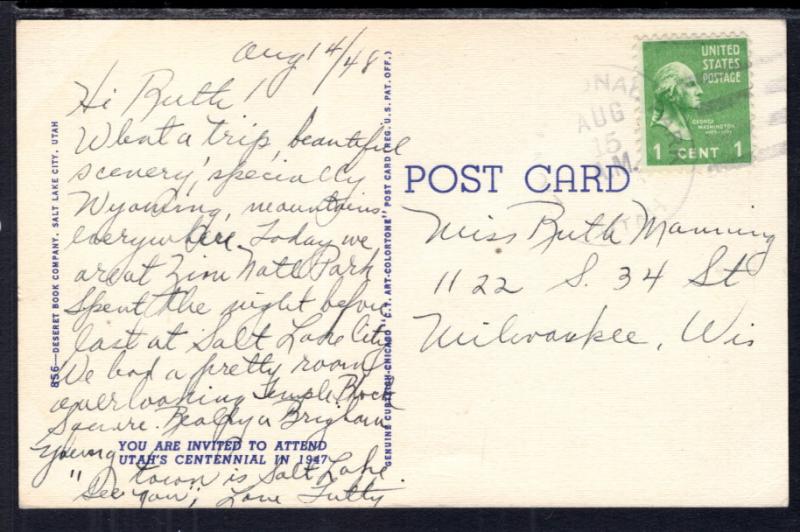 Aug 14/48
Hi Ruth!
What a trip, beautiful
scenery, specially
Wyoming, mountains
everywhere. Today we
are at Zion Natl Park
Spent the night before
last at Salt Lake City
We had a pretty room
overlooking Temple Block
Square. Really a Brigham
Young
YOU ARE INVITED TO ATTEND
UTAH'S CENTENNIAL IN 1947
" town is Salt Lake.
See you, Love Tutty
856—DESERET BOOK COMPANY, SALT LAKE CITY, UTAH
GENUINE CURTEICH-CHICAGO "C.T. ART-COLORTONE" POST CARD (REG. U.S. PAT. OFF.)
POST CARD
AUG
15
M.
UNITED
STATES
POSTAGE
GEORGE
WASHINGTON
1 CENT 1
Miss Ruth Manning
1122 S. 34 St
Milwaukee, Wis